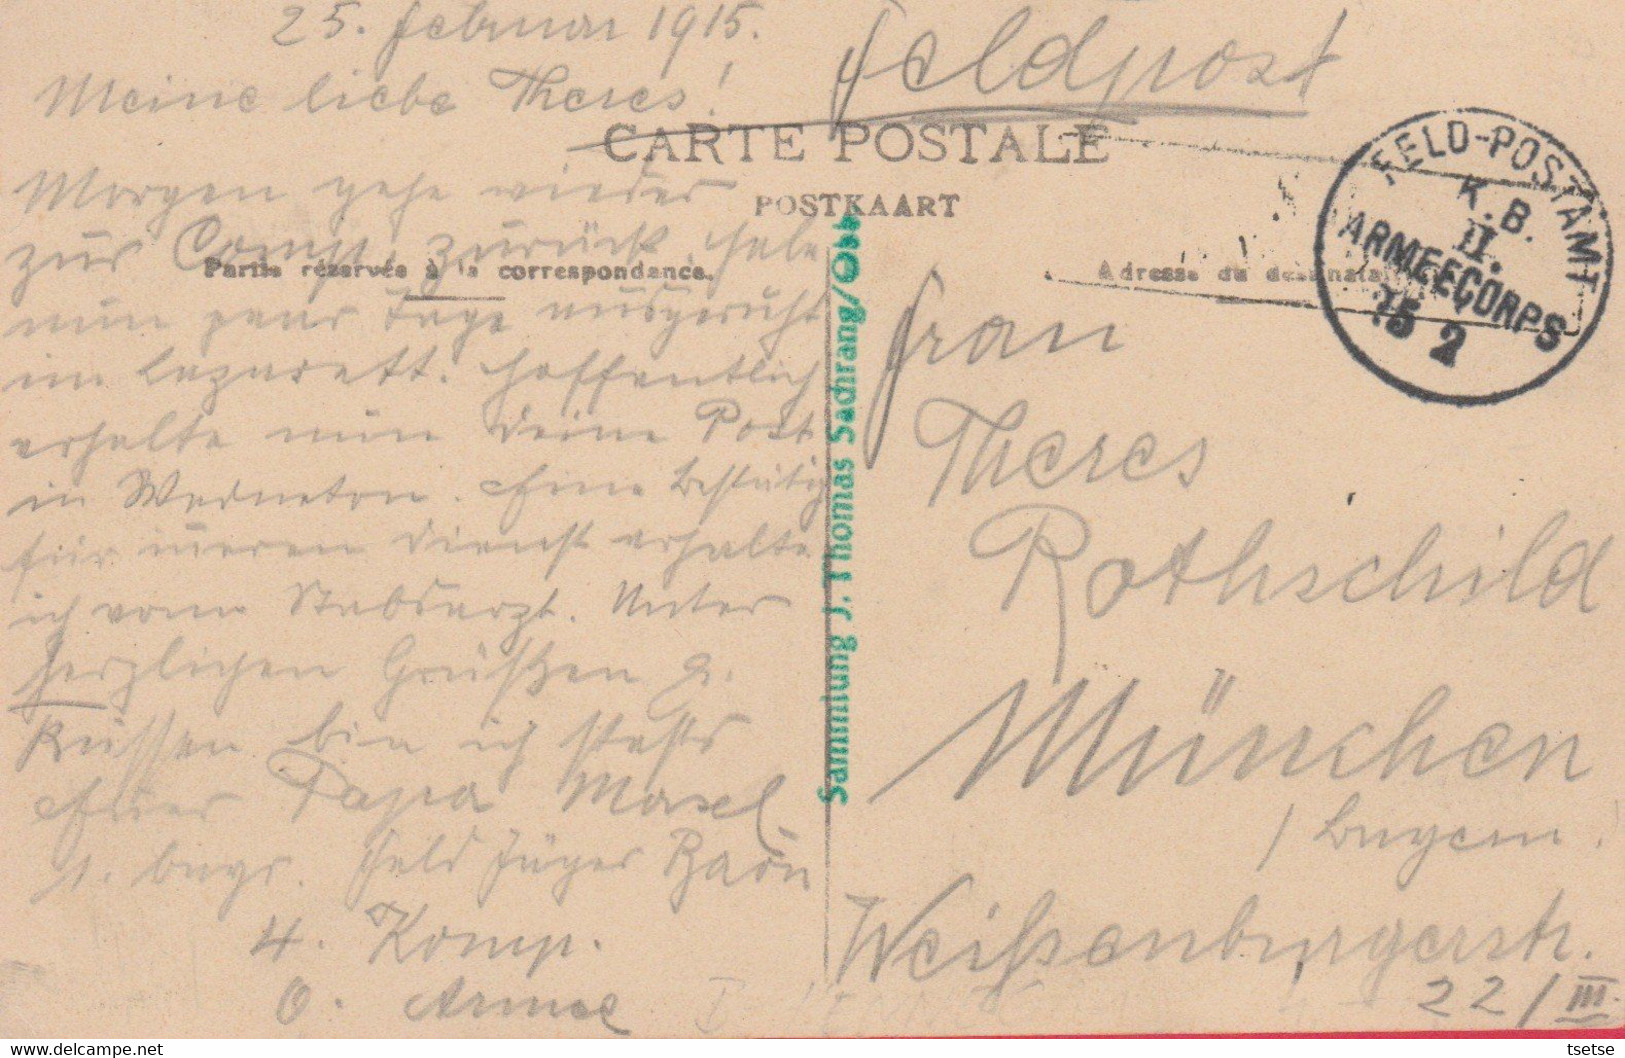 25. Februar 1915.
Meine liebe Theres!
Morgen gehe wieder
zur Comp. zurück, habe
nun paar Tage ausgeruht
im Lazarett. Hoffentlich
erhalte nun deine Post
in Warneton. Eine Bestätig
für inneren Dienst erhalte
ich vom Stabsarzt. Unter
herzlichen Grüßen &
Küssen bin ich stets
Euer Papa
1. bayr. Feld Jäger Batn
4. Komp.
6. Armee
Feldpost
CARTE POSTALE
POSTKAART
Partie réservée à la correspondance.
Adresse du destinataire
FELD-POSTAMT
K. B.
II.
ARMEECORPS
15 2
Frau
Theres
Rothschild
München
/ Bayern.
Weißenburgerstr.
22/III.
Sammlung J. Thomas Sachrang/Obb
tsetse